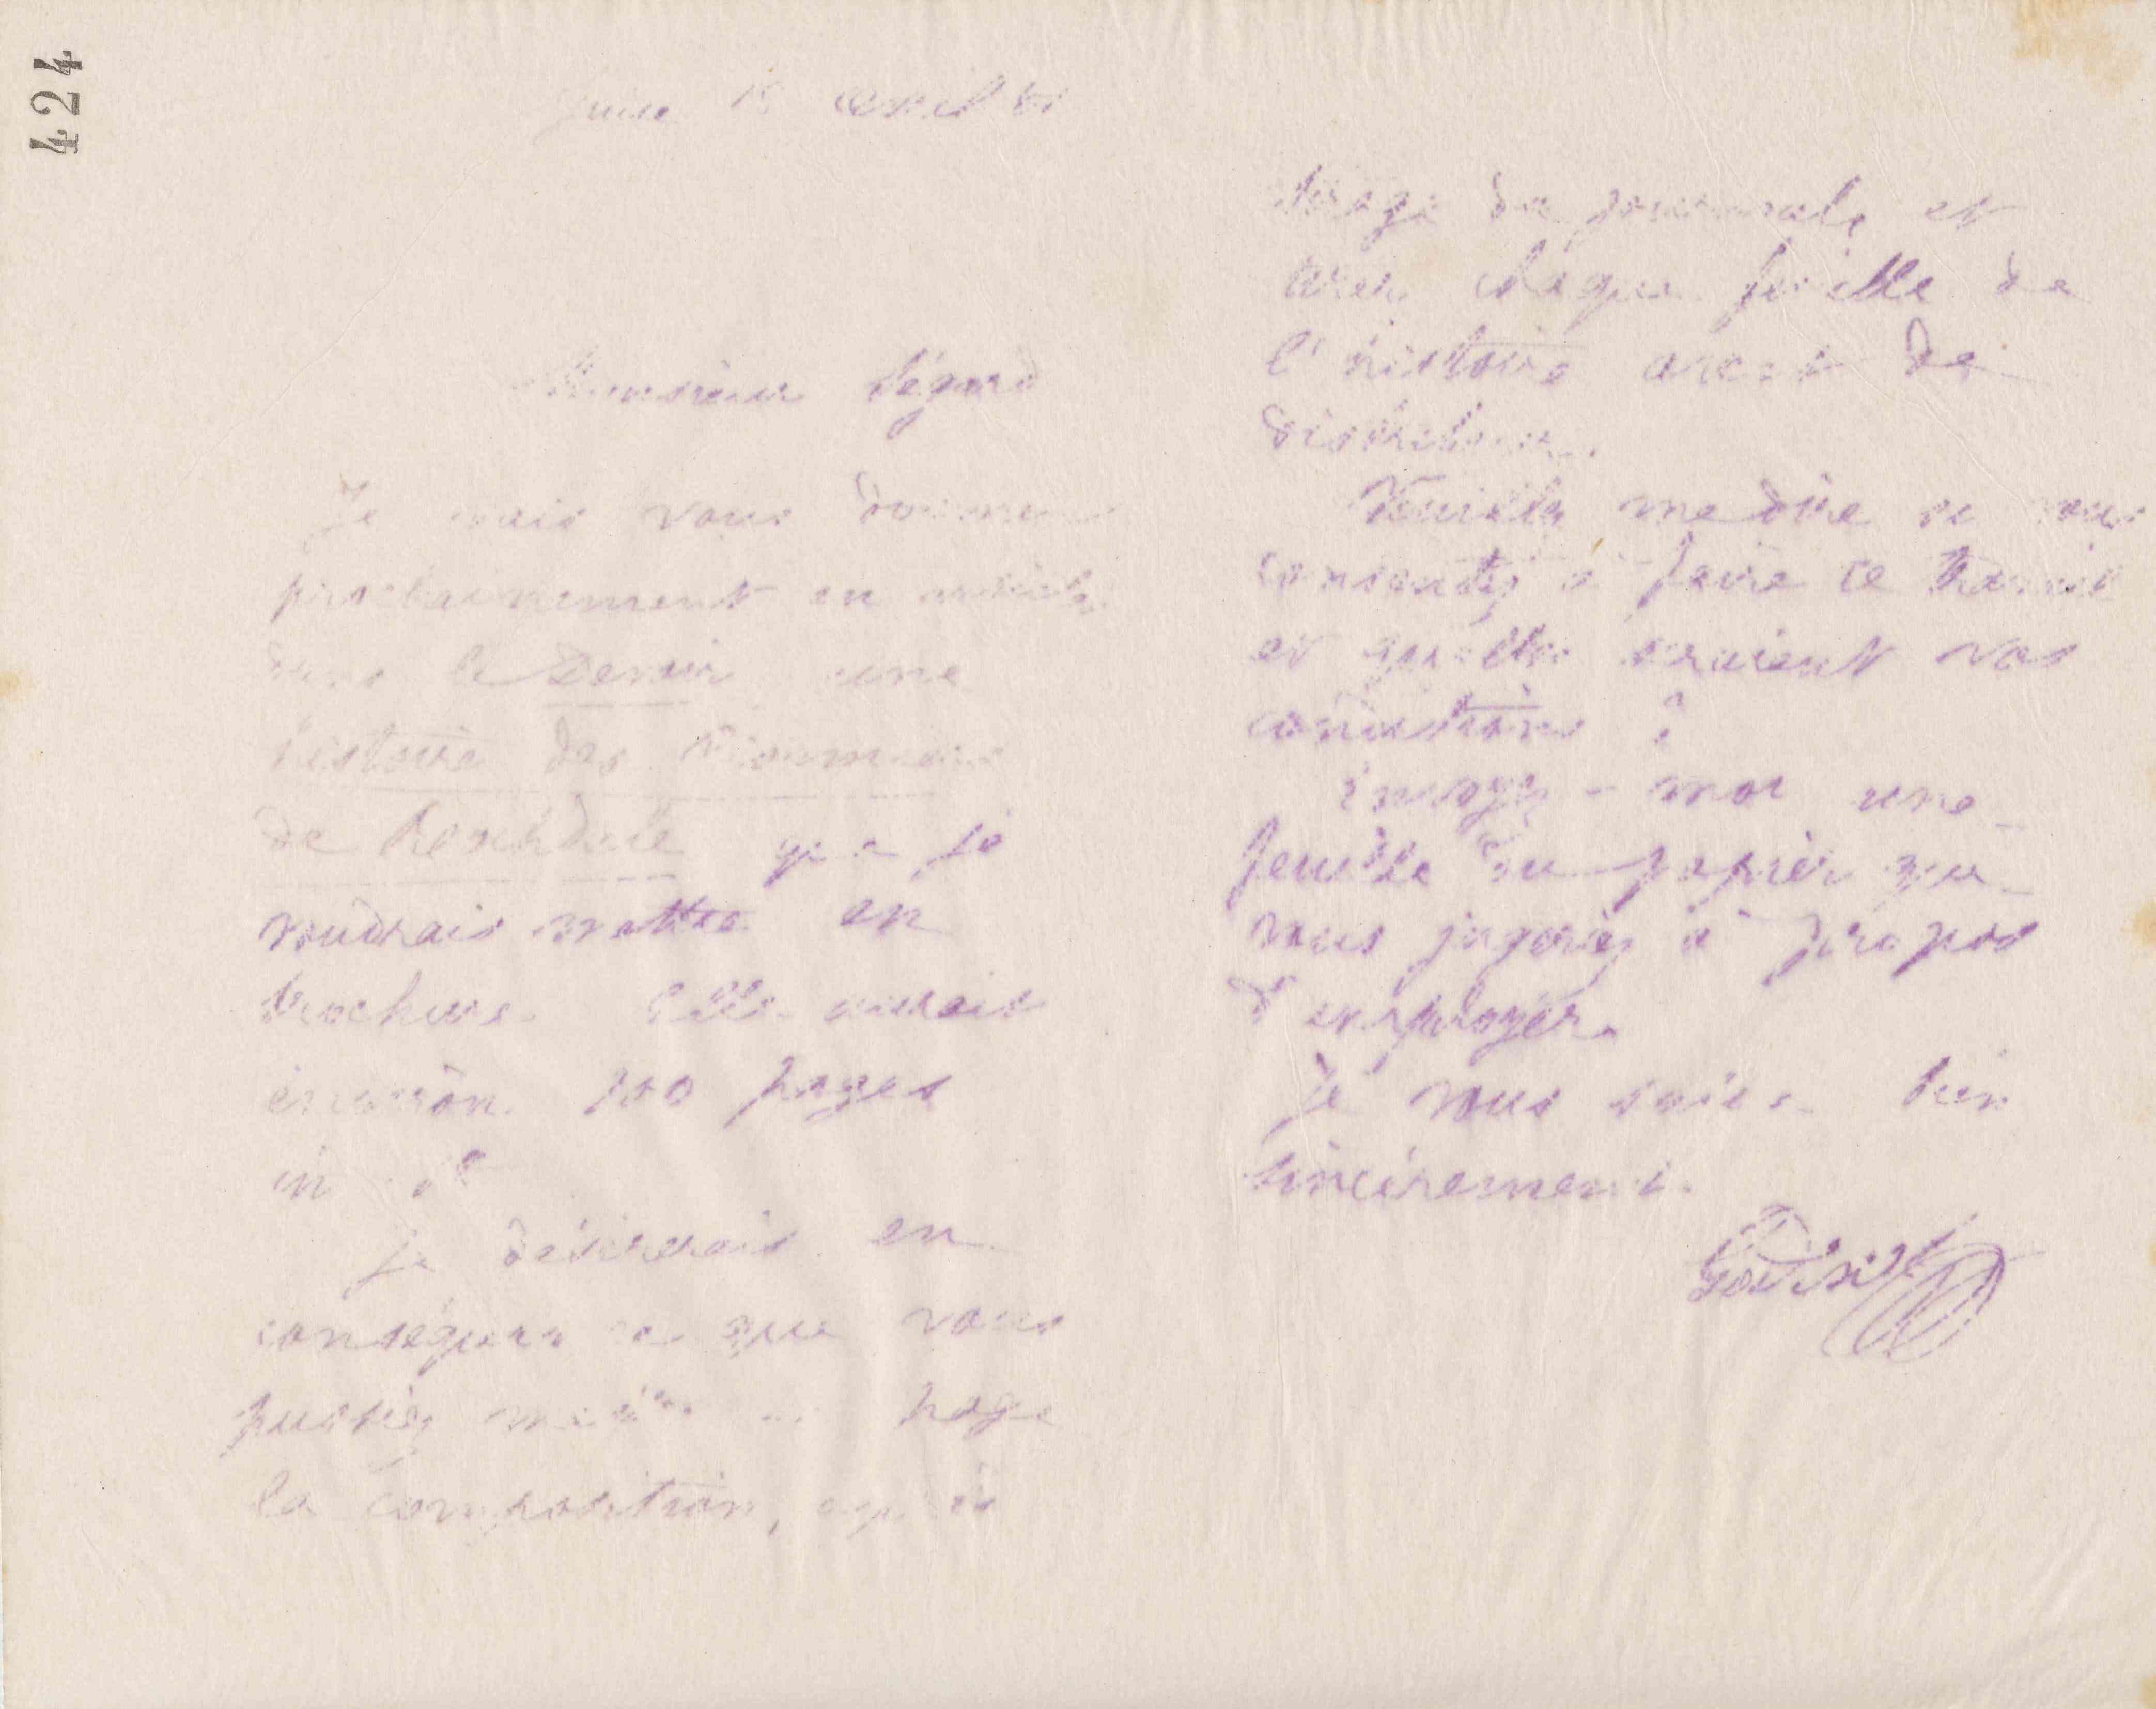 424
avril
Monsieur Ségard
Je vais vous donner
prochainement en articles
dans le Devoir une
histoire des Pionniers
de Rochdale que je
voudrais mettre en
brochure. Elle aurait
environ 100 pages
in 8°
Je désirerais en
conséquence que vous
puissiez mettre en page
la composition, après
tirage du journal, et
tirer chaque feuille de
l'histoire avant de
distribuer.
Veuillez me dire si vous
consentez à faire ce travail
et quelles seraient vos
conditions ?
Envoyez-moi une
feuille du papier que
vous jugeriez à propos
d'employer.
Je vous salue bien
sincèrement.
Godin